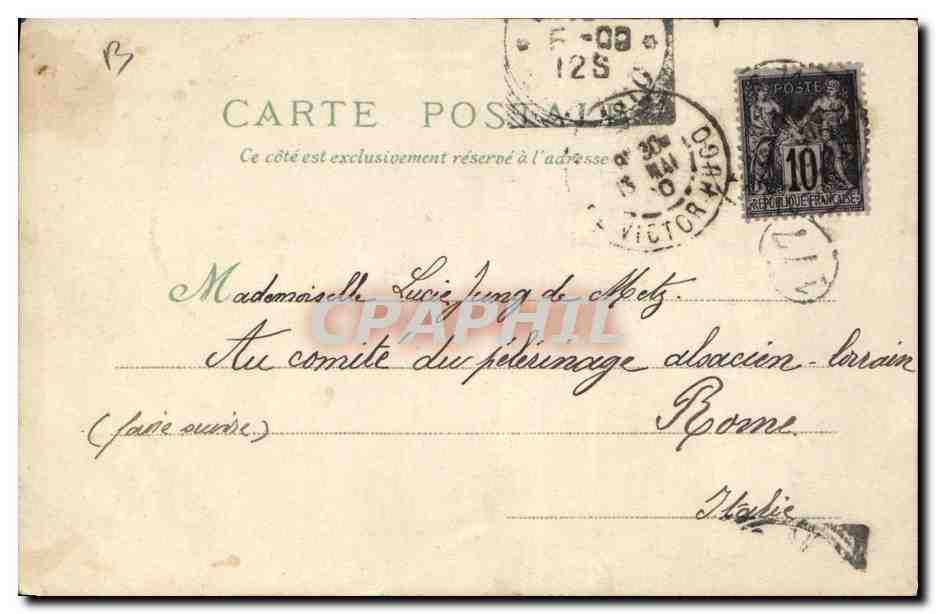 B
5 -00
12S
CARTE POSTALE
Ce côté est exclusivement réservé à l'adresse
POSTE
10
REPUBLIQUE FRANÇAISE
MAI
VICTOR HUGO
Mademoiselle Lucie Jung de Metz.
CPAPHIL
Au comité du pélerinage alsacien-lorrain
Rome
(faire suivre)
Italie